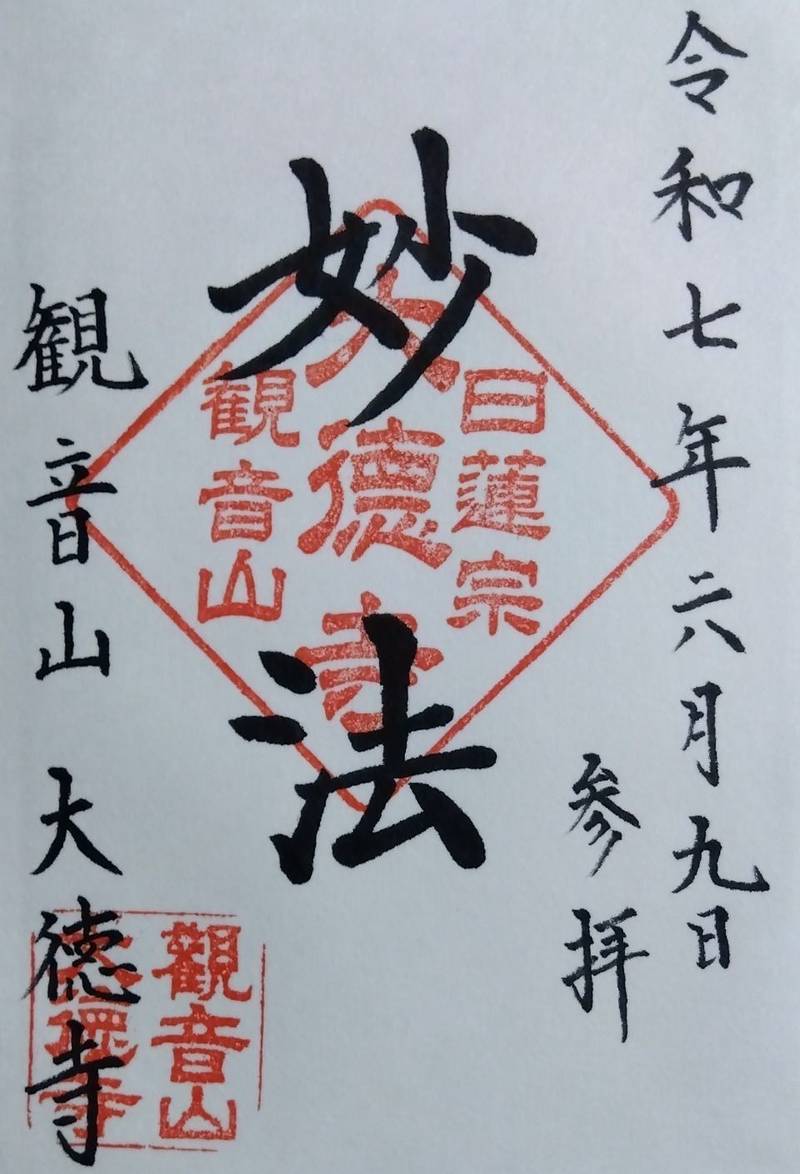 令和七年六月九日
参拝
妙法
日蓮宗
大德寺
観音山
観音山 大徳寺
觀音山